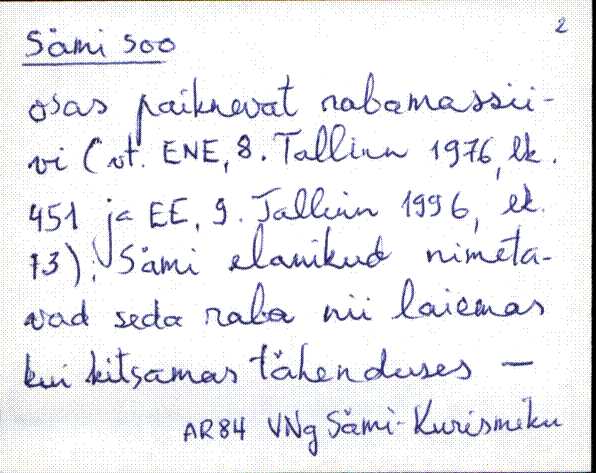 2
Sämi soo
osas paiknevat rabamassii-
vi (vt. ENE, 8. Tallinn 1976, lk.
451 ja EE, 9. Tallinn 1996, lk.
13). Sämi elanikud nimeta-
vad seda raba nii laiemas
kui kitsamas tähenduses —
AR84 VNg Sämi-Kurismiku